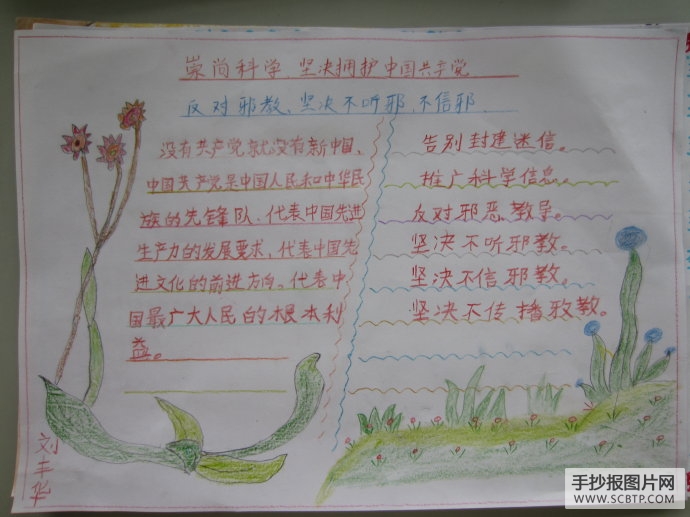 崇尚科学、坚决拥护中国共产党
反对邪教、坚决不听邪、不信邪
没有共产党就没有新中国、
中国共产党是中国人民和中华民
族的先锋队、代表中国先进
生产力的发展要求、代表中国先
进文化的前进方向。代表中
国最广大人民的根本利
益。
告别封建迷信。
推广科学信息。
反对邪恶教导。
坚决不听邪教。
坚决不信邪教。
坚决不传播邪教。
刘丰华
手抄报图片网
WWW.SCBTP.COM